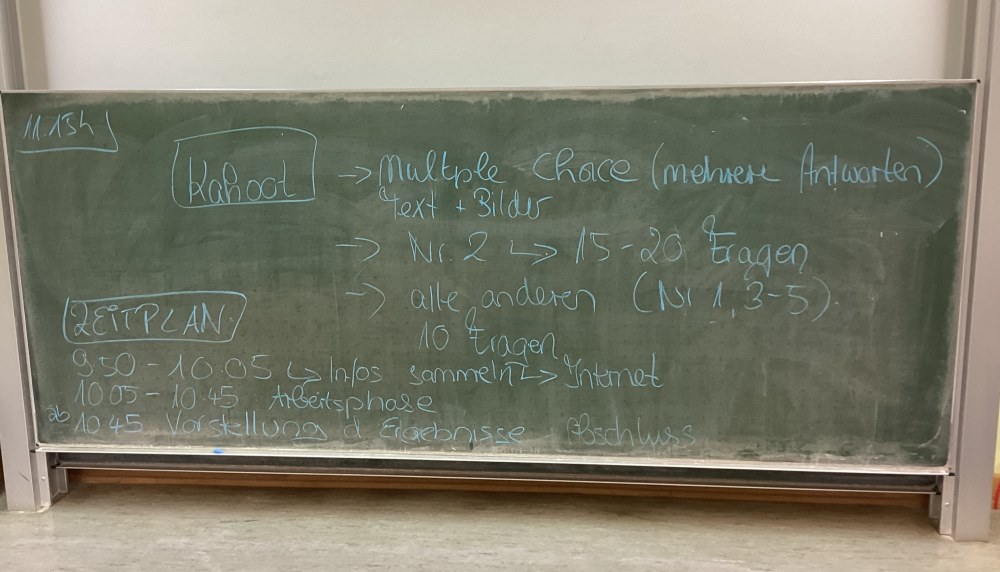 11.15h
Kahoot → Multple Choice (mehrere Antworten)
Text + Bilder
→ Nr. 2 ↳ 15-20 Fragen
→ alle anderen (Nr 1, 3-5).
10 Fragen
ZEITPLAN
9.50 - 10.05 ↳ Infos sammeln ↳ Internet
10.05 - 10.45 Arbeitsphase
ab 10.45 Vorstellung d Ergebnisse - Abschluss